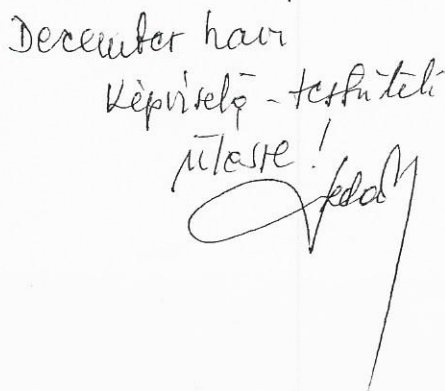 December havi
Képviselő-testületi
ülésre!